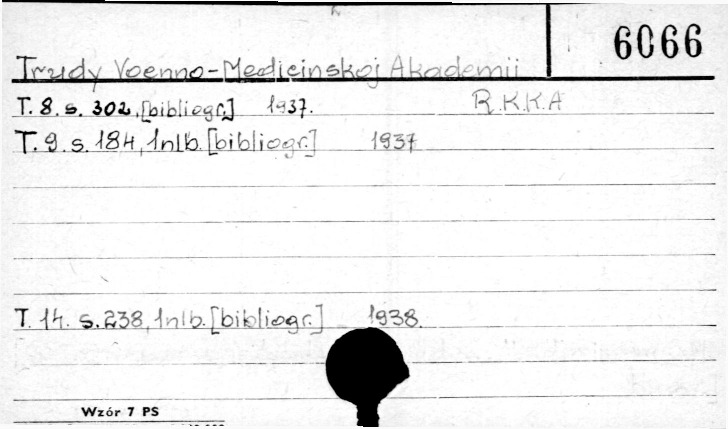 6066
Trudy Voenno-Medicinskoj Akademii
R.K.K.A
T. 8. s. 302, [bibliogr.] 1937.
T. 9. s. 184, 1nlb. [bibliogr.] 1937
T. 14. s. 238, 1nlb. [bibliogr.] 1938.
Wzór 7 PS